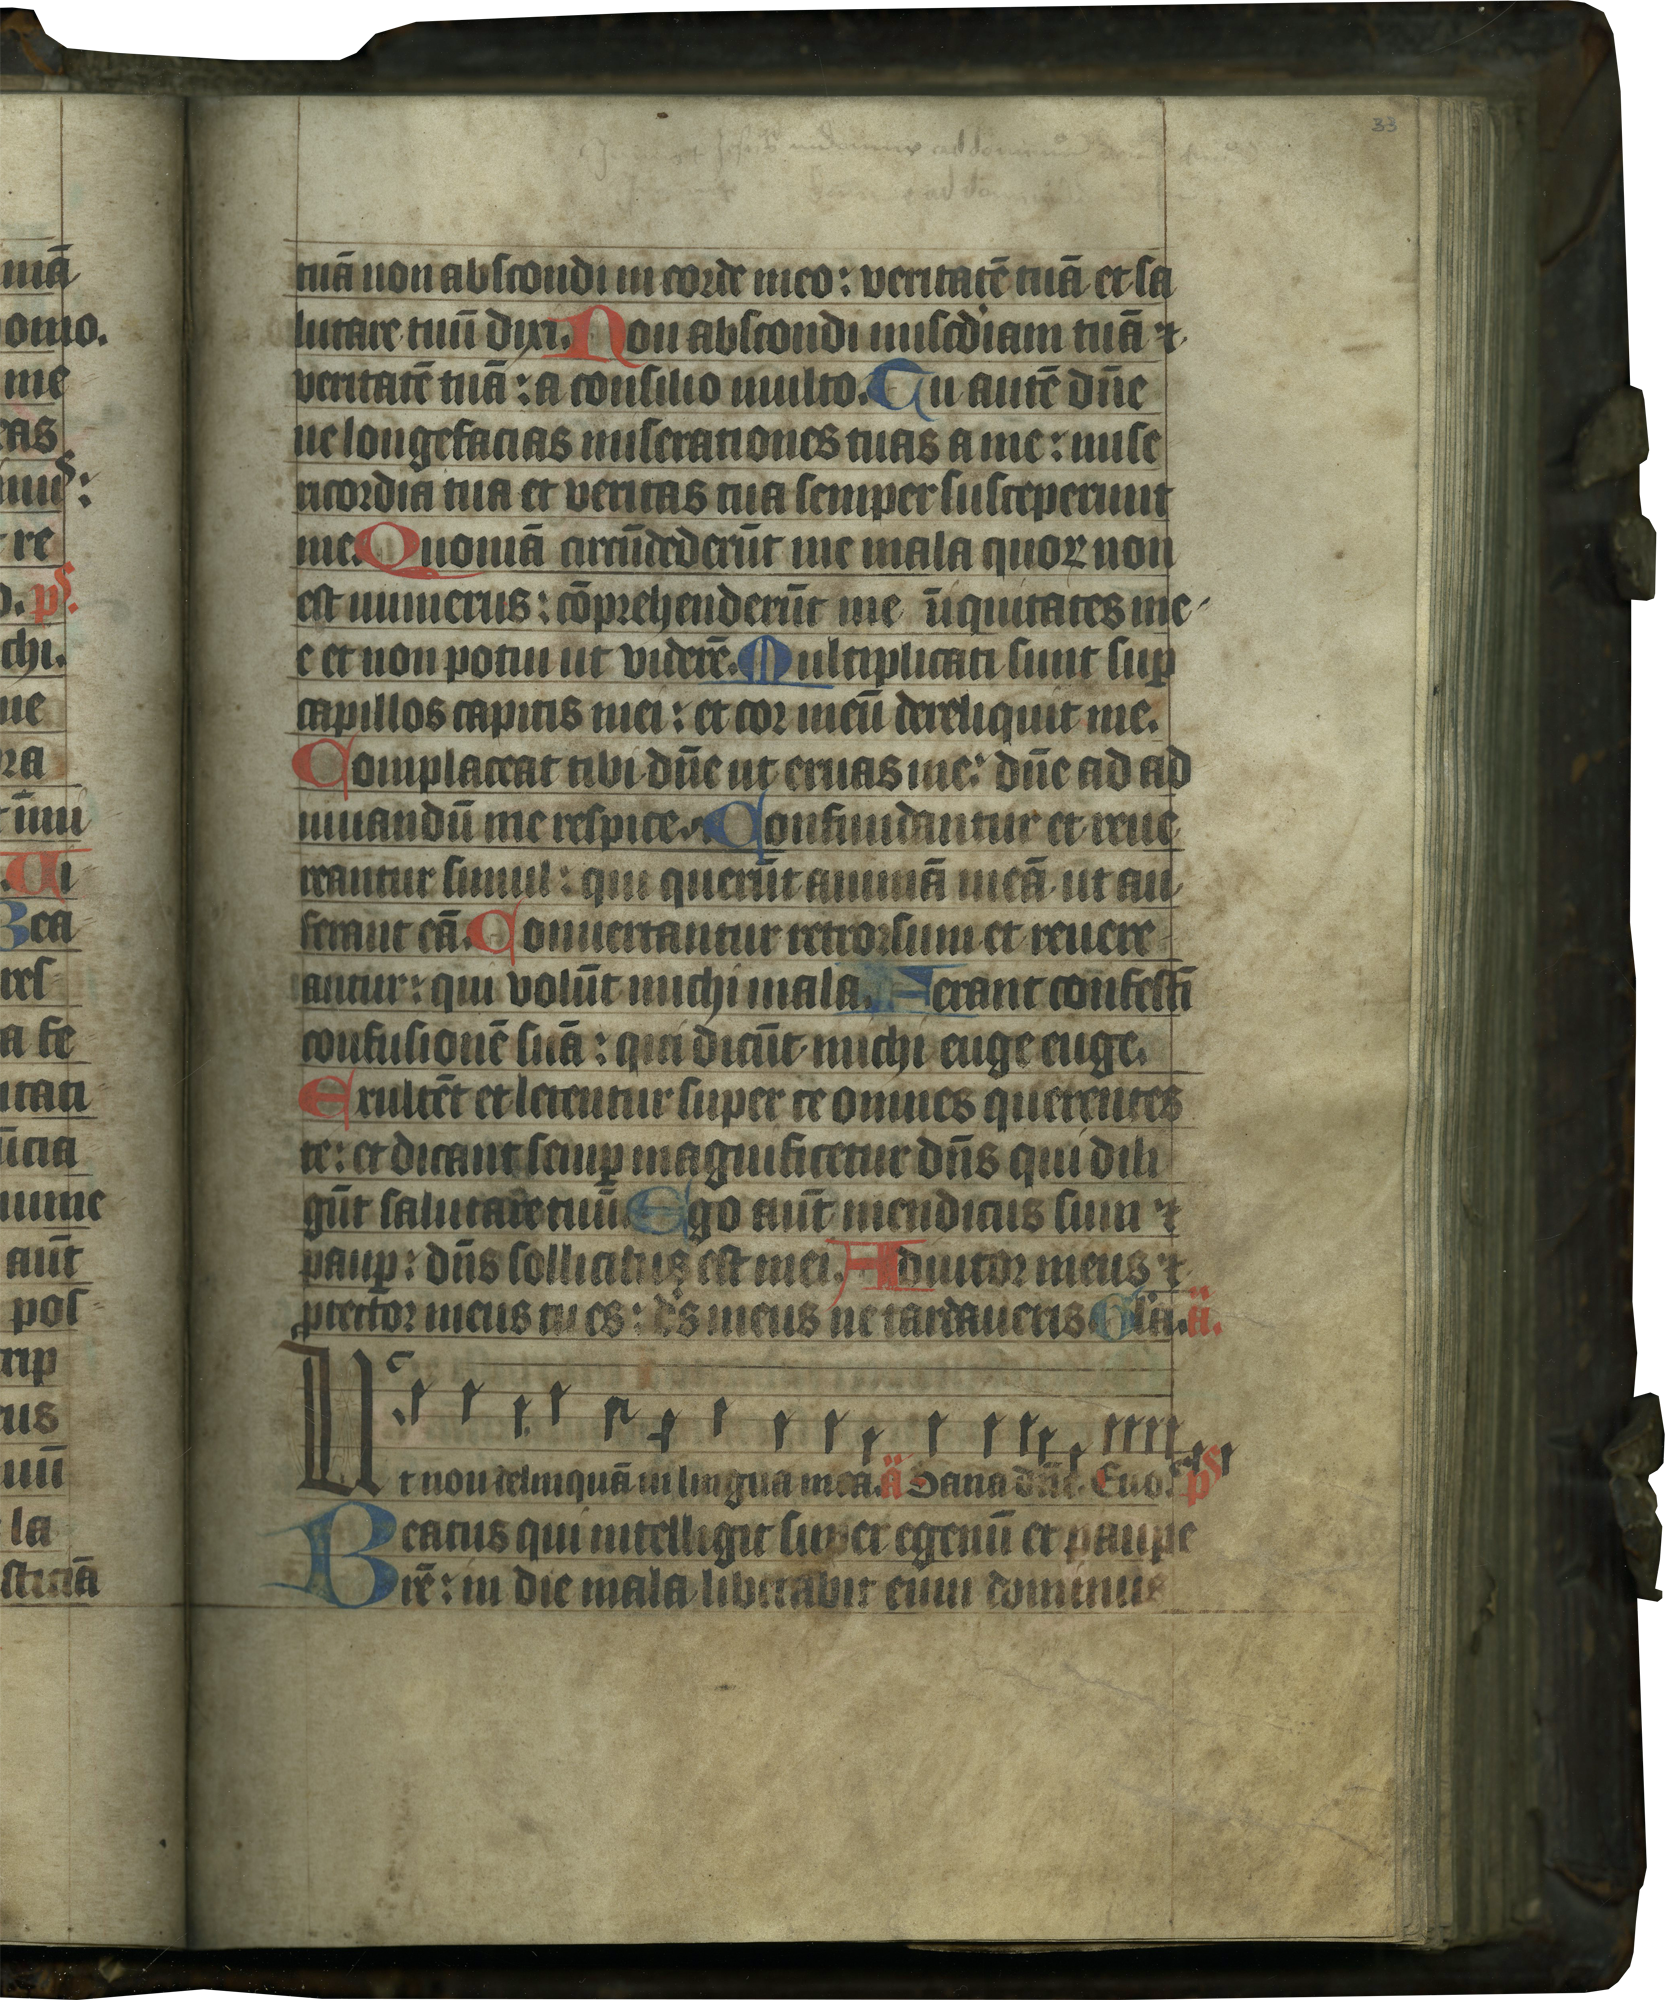 33
tuā non abscondi in corde meo: veritatē tuā et sa
lutare tuū dixi. Non abscondi miscdiam tuā ⁊
veritatē tuā: a consilio multo. Tu autē dn̄e
ne longefacias miserationes tuas a me: mise
ricordia tua et veritas tua semper susceperunt
me. Quoniā circūdederūt me mala quoꝝ non
est numerus: cōprehenderūt me īiquitates me
e et non potui ut viderē. Multiplicati sunt suꝑ
capillos capitis mei: et cor meū dereliquit me.
Complaceat tibi dn̄e ut eruas me: dn̄e ad ad
iuuandū me respice. Confundantur et reue
reantur simul: qui querūt animā meā ut au
ferant eā. Conuertantur retrorsum et reuere
antur: qui volūt michi mala. Ferant confestī
confusionē suā: qui dicūt michi euge euge.
Exultēt et letentur super te omnes querentes
te: et dicant semꝑ magnificetur dn̄s qui dili
gūt salutare tuū. Ego aūt mendicus sum ⁊
pauꝑ: dn̄s sollicitus est mei. Adiutor meus ⁊
ꝓtector meus tu es: ds̄ meus ne tardaueris. Gl̄a. ä.
Ut non delinquā in lingua mea. ä Sana dn̄e. Euo. pS
Beatus qui intelligit super egenū et paupe
rē: in die mala liberabit eum dominus
mā
omo.
me
eas
re
pS.
chi.
ue
ra
Ui
Bea
res
a fe
itati
ūcia
aūt
pos
rip
cus
la
sticiā